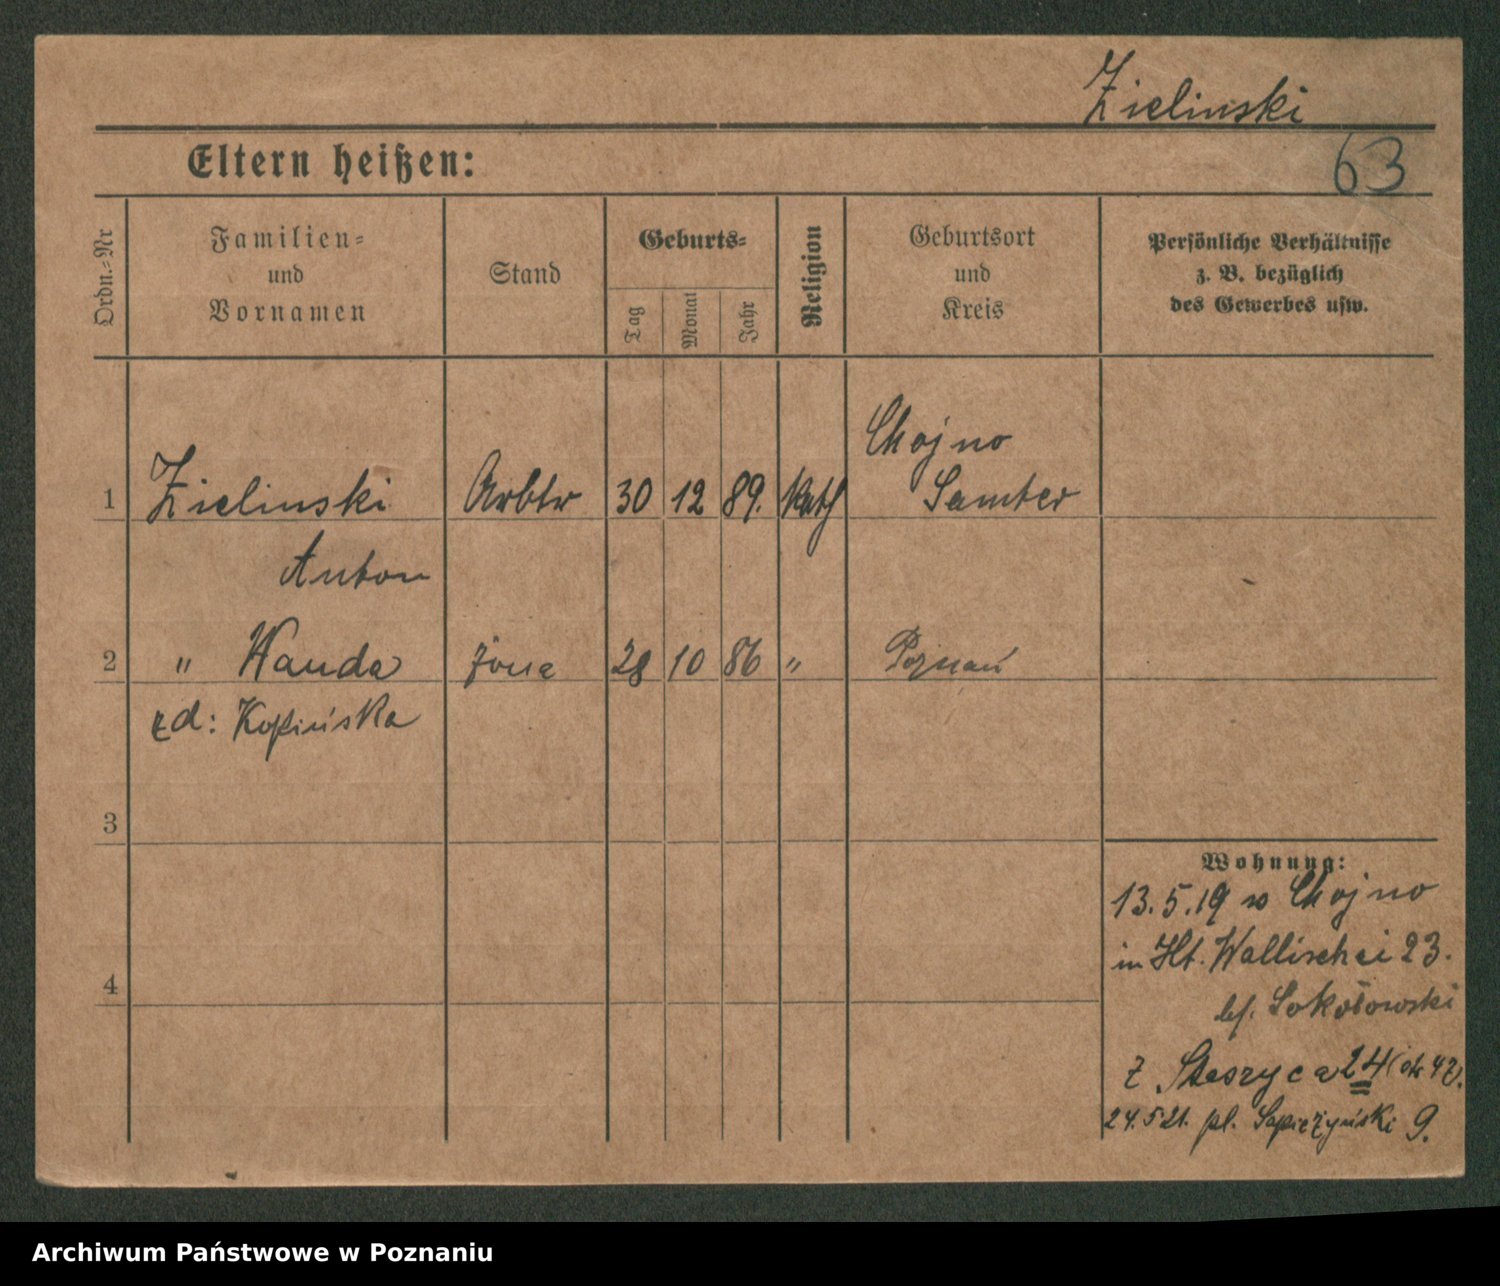 Zielinski
63
Eltern heißen:
Ordn.-Nr
Familien- und Vornamen
Stand
Geburts-
Tag
Monat
Jahr
Religion
Geburtsort und Kreis
Persönliche Verhältnisse
z. B. bezüglich
des Gewerbes usw.
Chojno
1 Zielinski Arbtr 30 12 89. kath Samter
Anton
2 " Wanda żona 28 10 86 " Poznań
zd: Kopińska
3
4
Wohnung:
13.5.19 w Chojno
in Ht. Wallischei 23.
bf. Sokołowski
z Staszyca 24
24.5 21. pl. Sapieżyński 9.
Archiwum Państwowe w Poznaniu